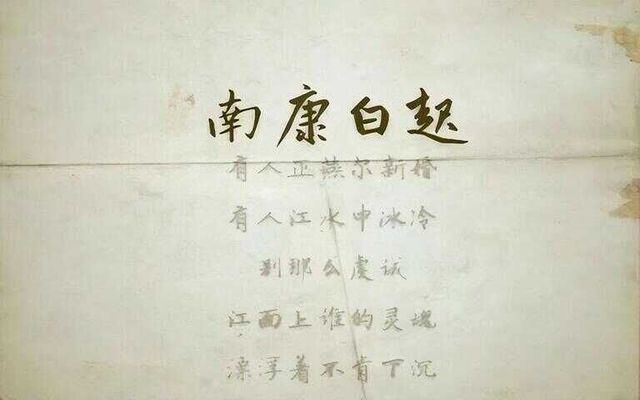 南康白起
有人正燕尔新婚
有人江水中冰冷
别那么虔诚
江面上谁的灵魂
漂浮着不肯下沉